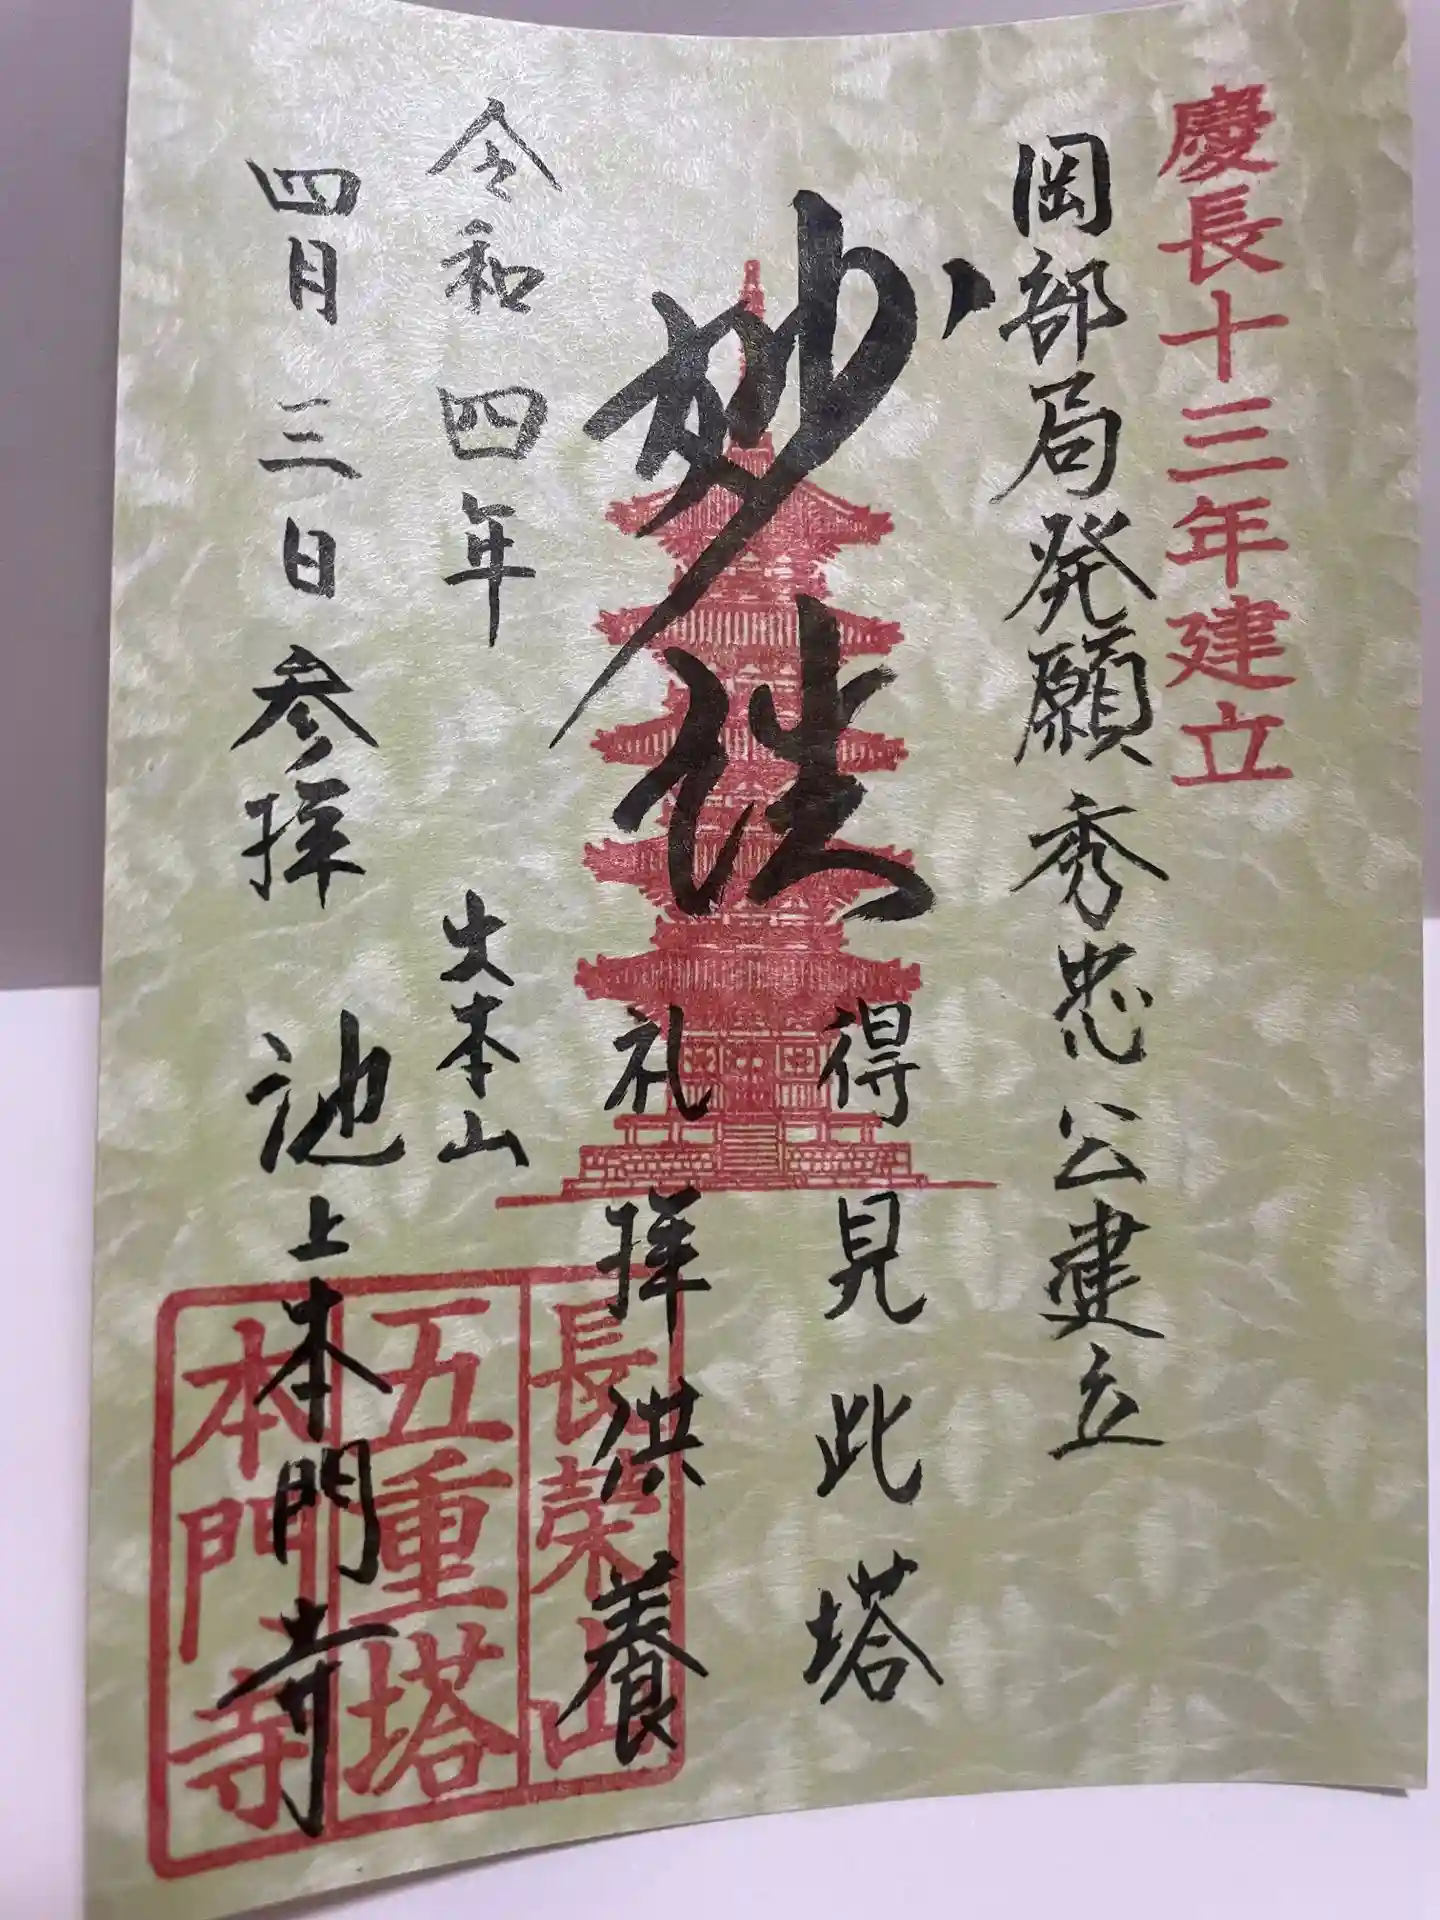 慶長十三年建立
岡部局発願秀忠公建立
妙法
得見此塔
礼拝供養
令和四年
大本山
四月三日参拝
池上本門寺
長榮山
五重塔
本門寺